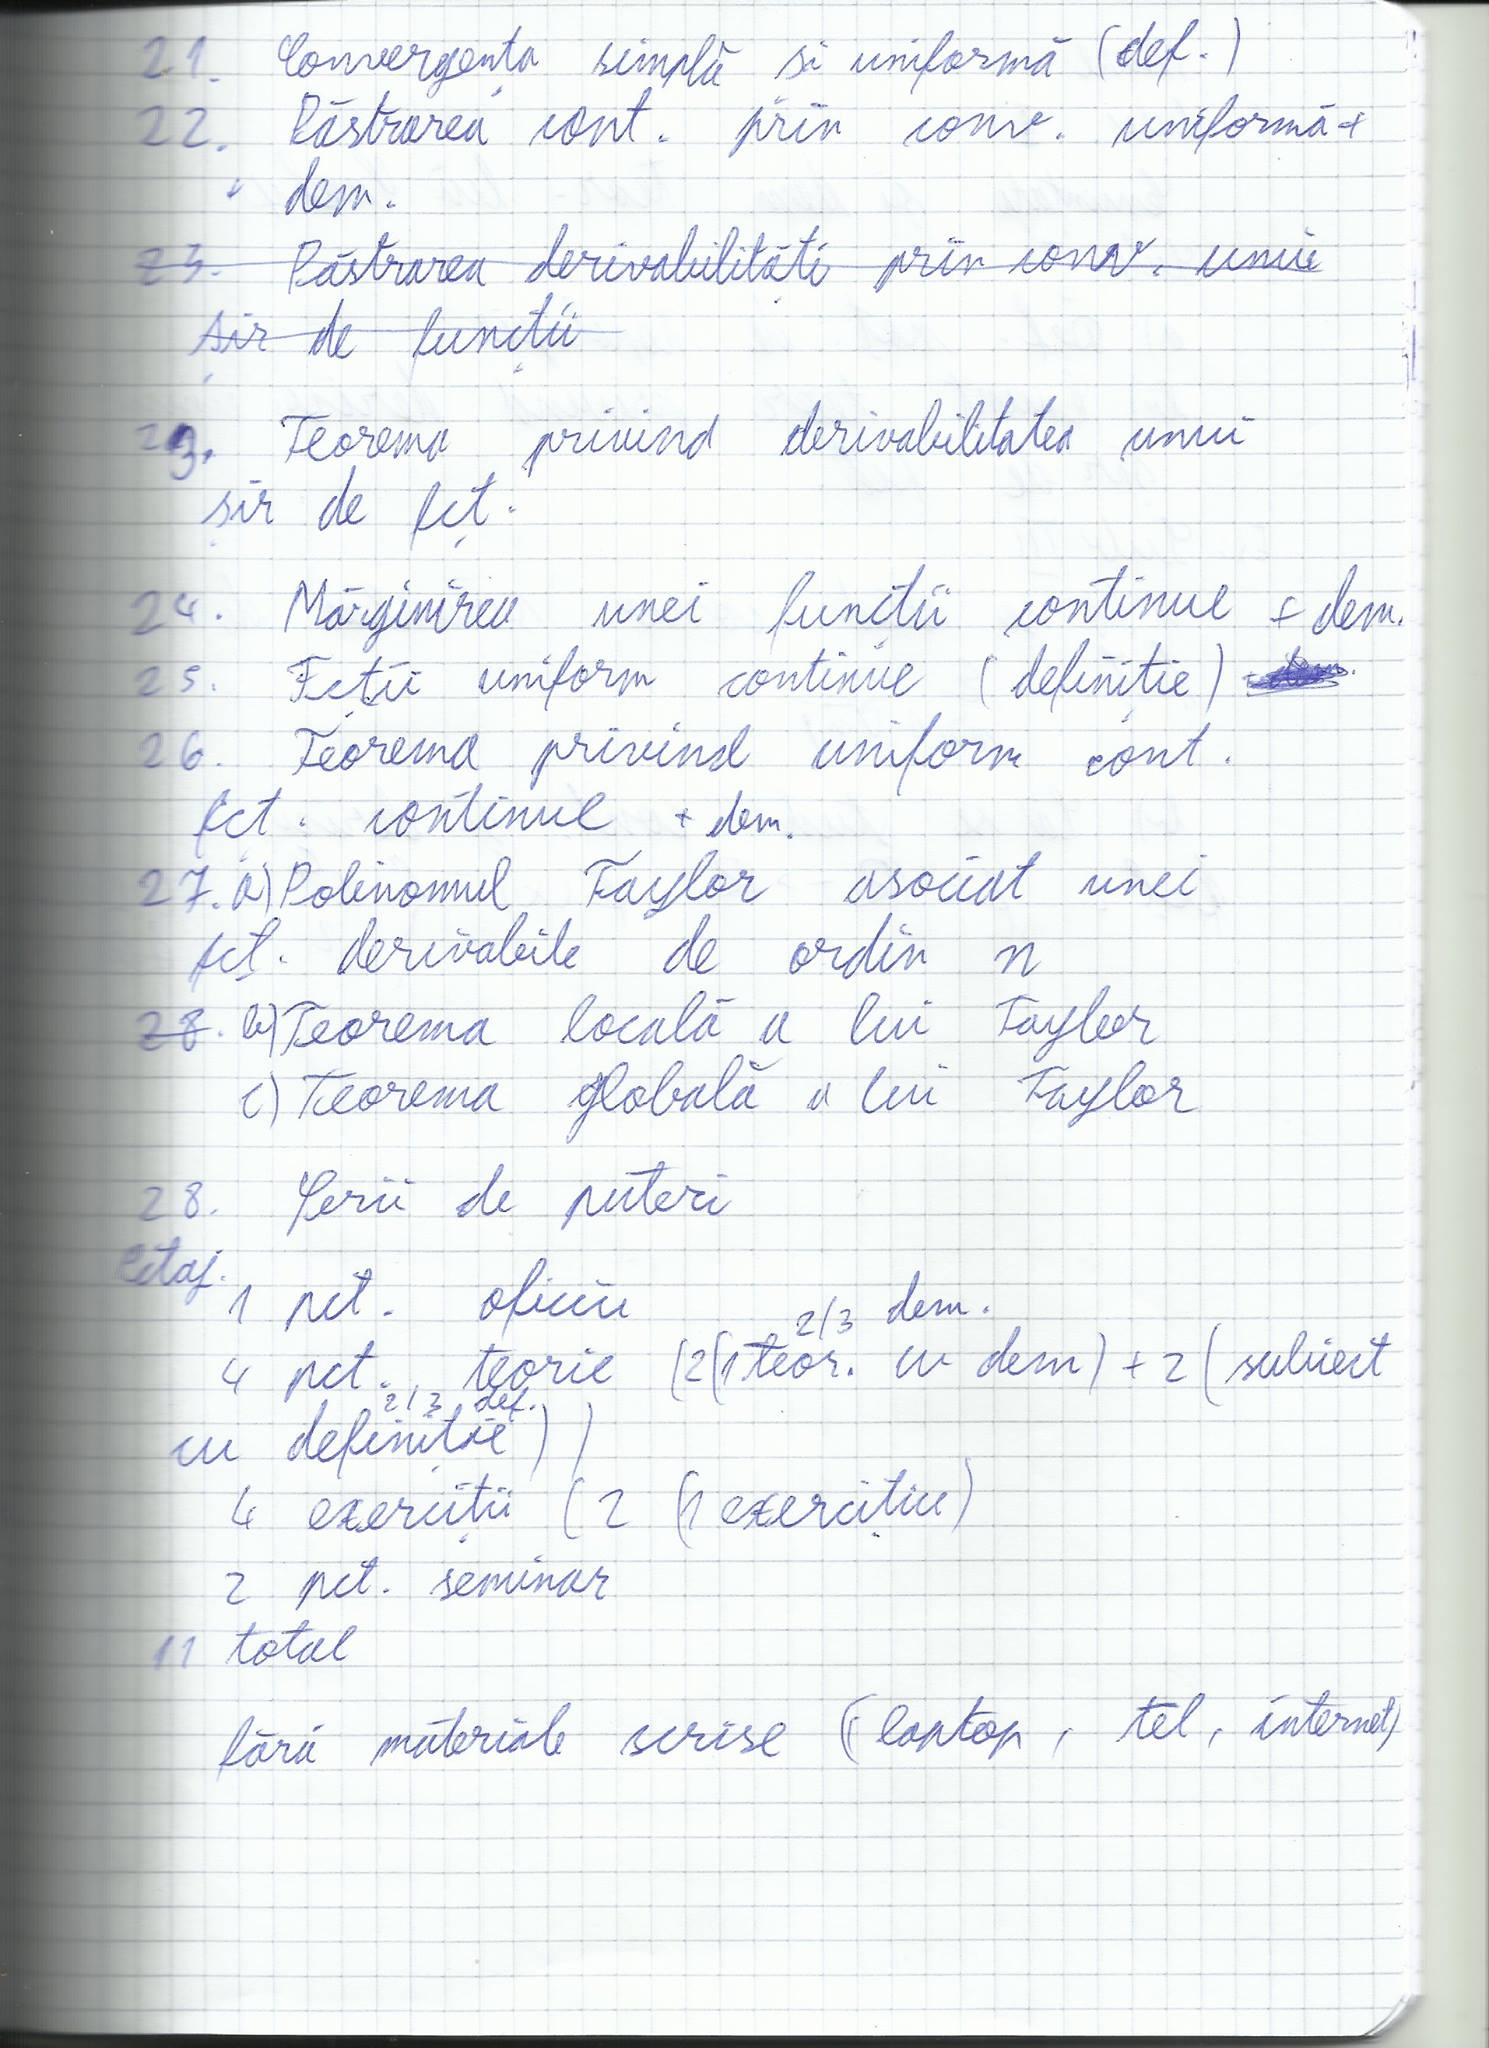 21. Convergența simplă si uniformă (def.)
22. Păstrarea cont. prin conv. uniformă +
dem.
23. Păstrarea derivabilității prin conv. unui
șir de funcții
23. Teorema privind derivabilitatea unui
șir de fcț.
24. Mărginirea unei funcții continue + dem.
25. Fcții uniform continue (definiție)
26. Teorema privind uniform cont.
fcț. continue + dem.
27. a) Polinomul Taylor asociat unei
fcț. derivabile de ordin n
28. b) Teorema locală a lui Taylor
c) Teorema globală a lui Taylor
28. Serii de puteri
1 pct. oficiu
2/3 dem.
4 pct. teorie (2(1 teor. cu dem) + 2 (subiect
2/3 def.
cu definiție))
4 exerciții (2 (1 exercițiu)
2 pct. seminar
11 total
fără materiale scrise (laptop, tel, internet)